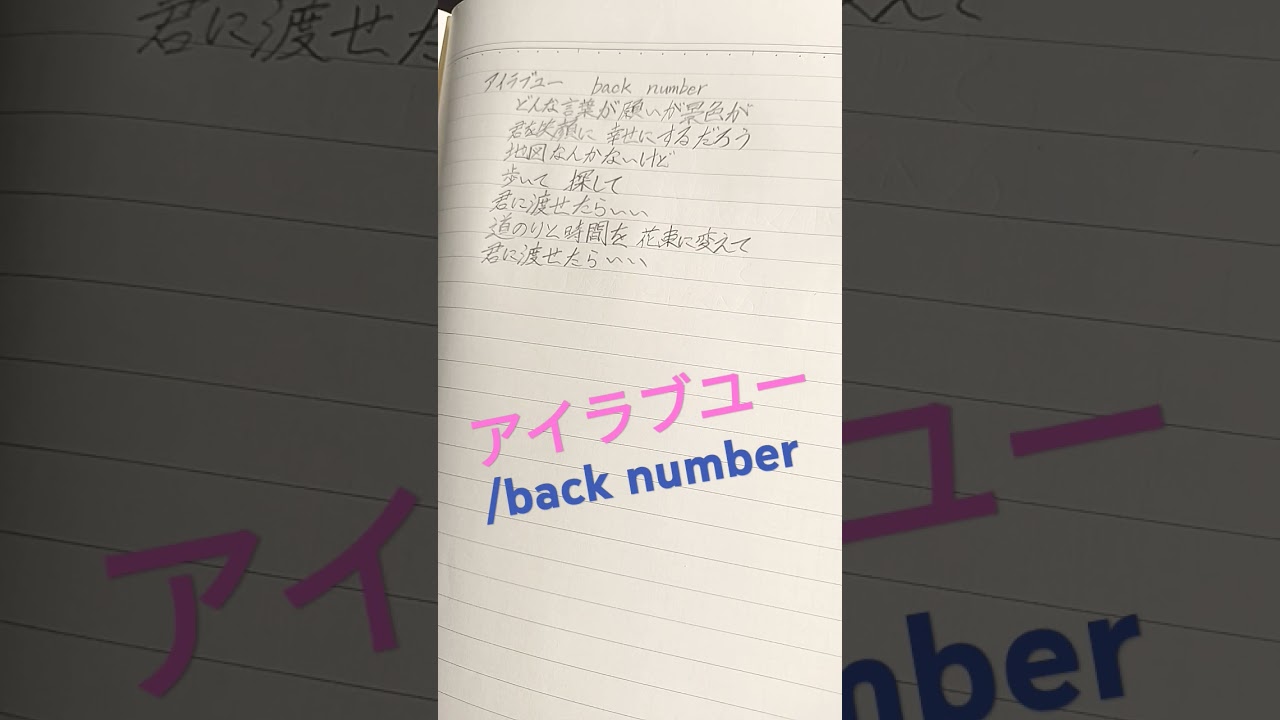 アイラブユー back number
どんな言葉が願いが景色が
君を笑顔に 幸せにするだろう
地図なんかないけど
歩いて 探して
君に渡せたらいい
道のりと時間を 花束に変えて
君に渡せたらいい
アイラブユー
/back number